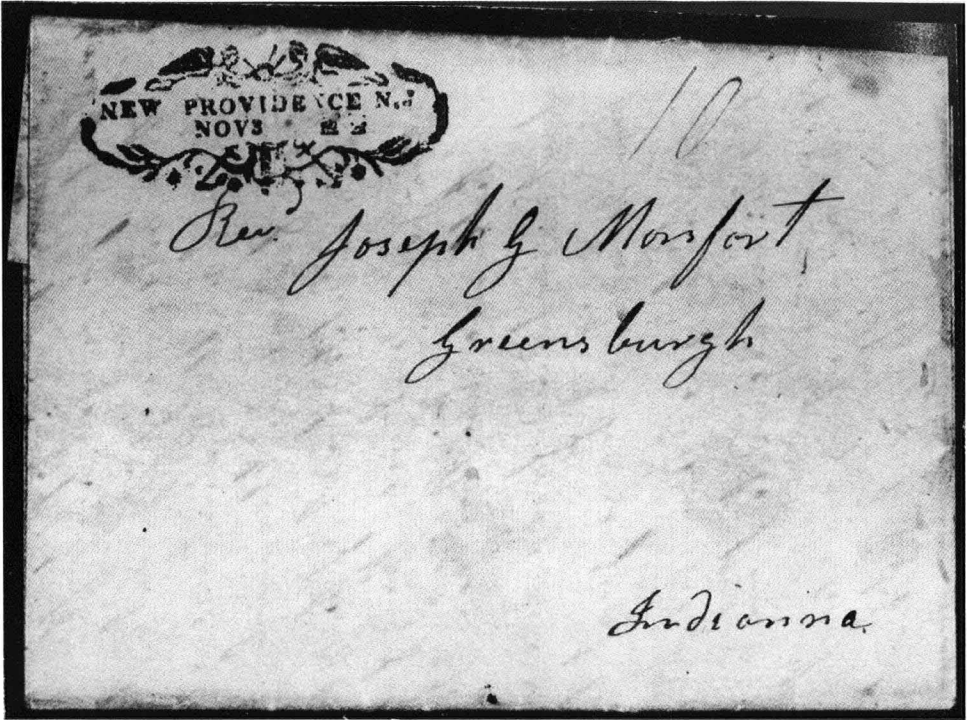 NEW PROVIDENCE N.J
NOV 3
10
Rev. Joseph G Monfort
Greensburgh
Indianna.